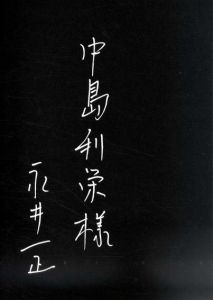 中島利栄様
永井一正